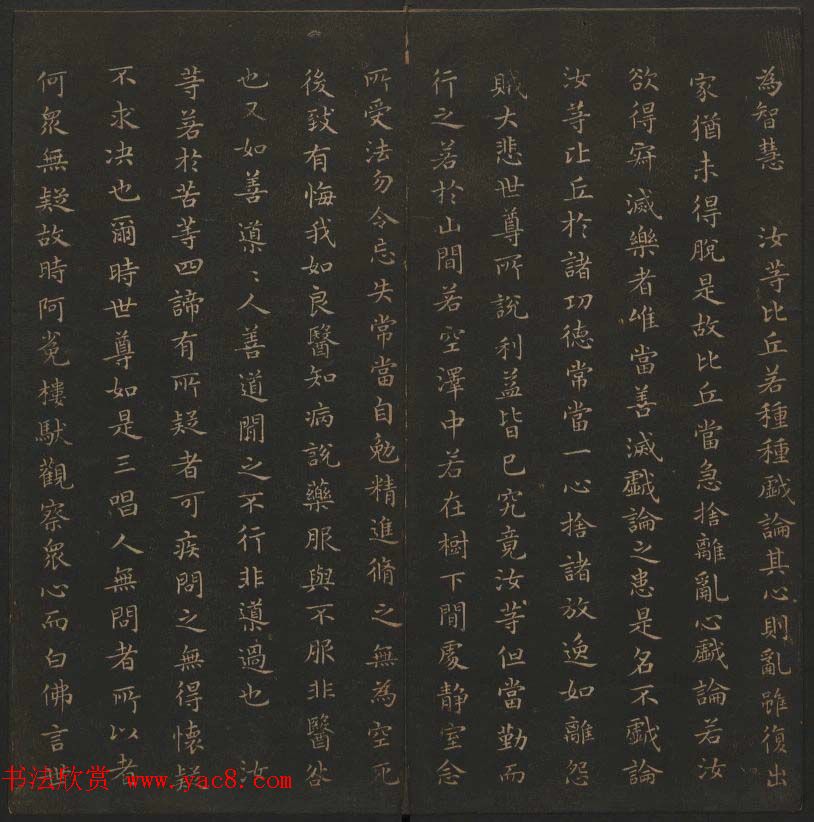 為智慧 汝等比丘若種種戯論其心則亂雖復出
家猶未得脫是故比丘當急捨離亂心戯論若汝
欲得寂滅樂者唯當善滅戯論之患是名不戯論
汝等比丘於諸功德常當一心捨諸放逸如離怨
賊大悲世尊所說利益皆已究竟汝等但當勤而
行之若於山間若空澤中若在樹下閒處靜室念
所受法勿令忘失常當自勉精進脩之無為空死
後致有悔我如良醫知病說藥服與不服非醫咎
也又如善導〻人善道聞之不行非導過也 汝
等若於苦等四諦有所疑者可疾問之無得懷疑
不求決也爾時世尊如是三唱人無問者所以者
何眾無疑故時阿㝹樓馱觀察眾心而白佛言世
书法欣赏 www.yac8.com